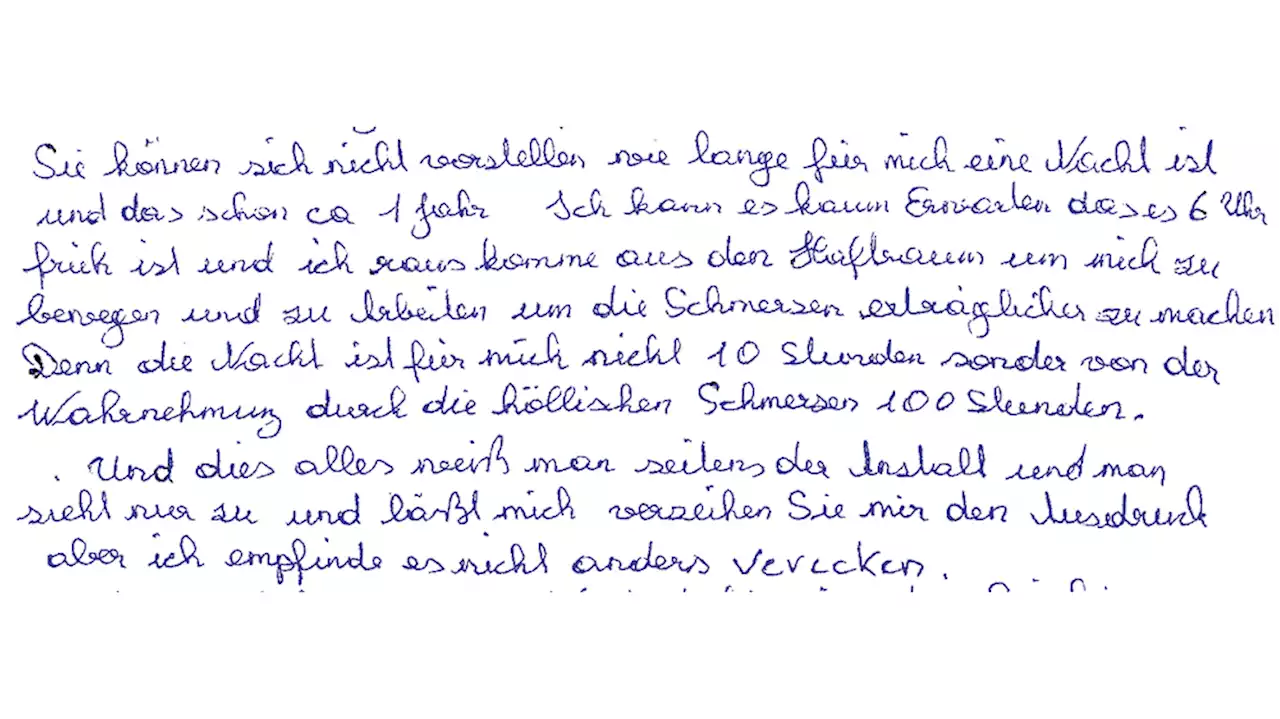 Sie können sich nicht vorstellen wie lange für mich eine Nacht ist
und das schon ca 1 Jahr Ich kann es kaum Erwarten das es 6 Uhr
früh ist und ich raus komme aus den Haftraum um mich zu
bewegen und zu Arbeiten um die Schmersen erträglicher zu machen
Denn die Nacht ist für mich nicht 10 Stunden sonder von der
Wahrnehmung durch die höllischen Schmersen 100 Stunden.
. Und dies alles weiß man seitens der Anstalt und man
sieht nur zu und läßt mich verzeihen Sie mir den Ausdruck
aber ich empfinde es nicht anders verecken.